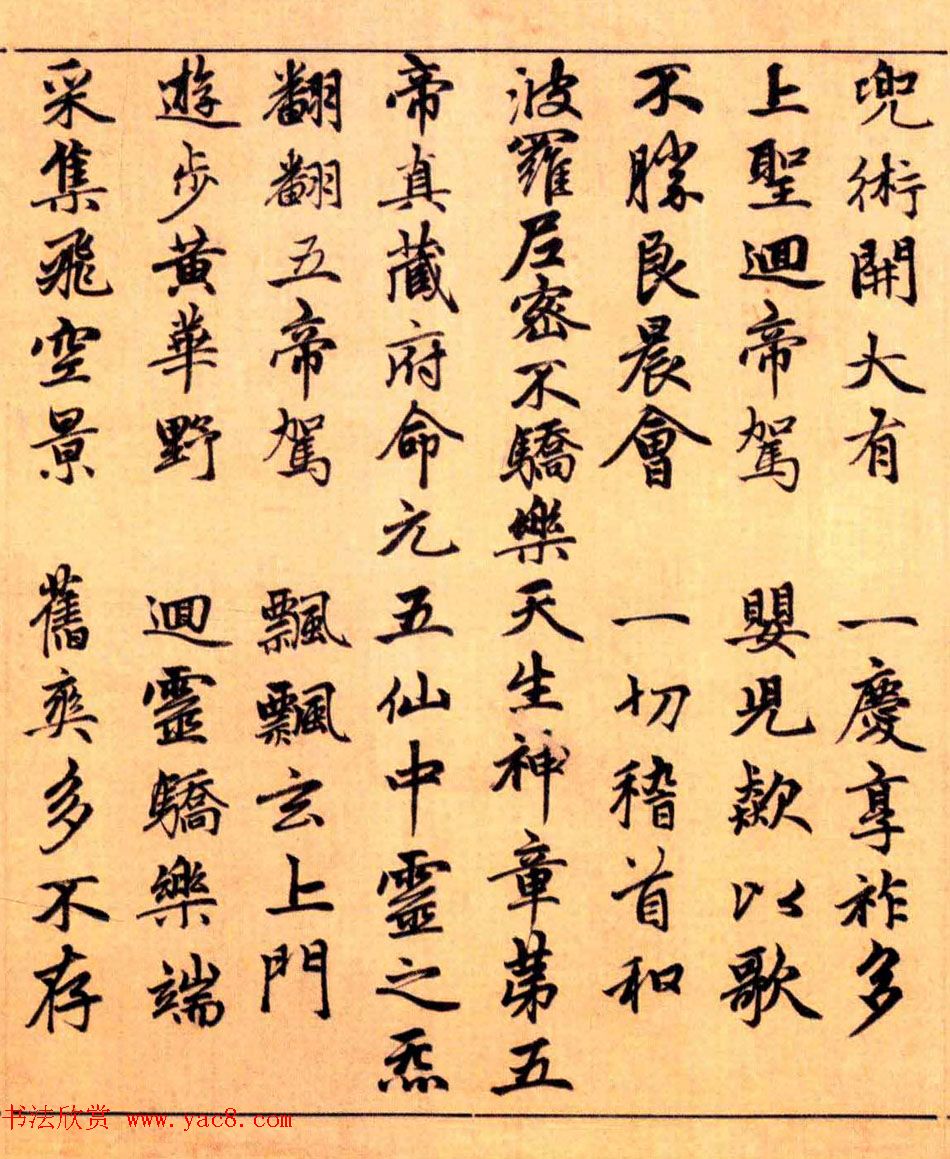 兜術開大有　一慶享祚多
上聖迴帝駕　嬰兒歘以歌
不勝良晨會　一切稽首和
波羅尼密不驕樂天生神章第五
帝真藏府命元五仙中靈之炁
翻翻五帝駕　飄飄玄上門
遊步黃華野　迴靈驕樂端
采集飛空景　舊爽多不存
书法欣赏 www.yac8.com